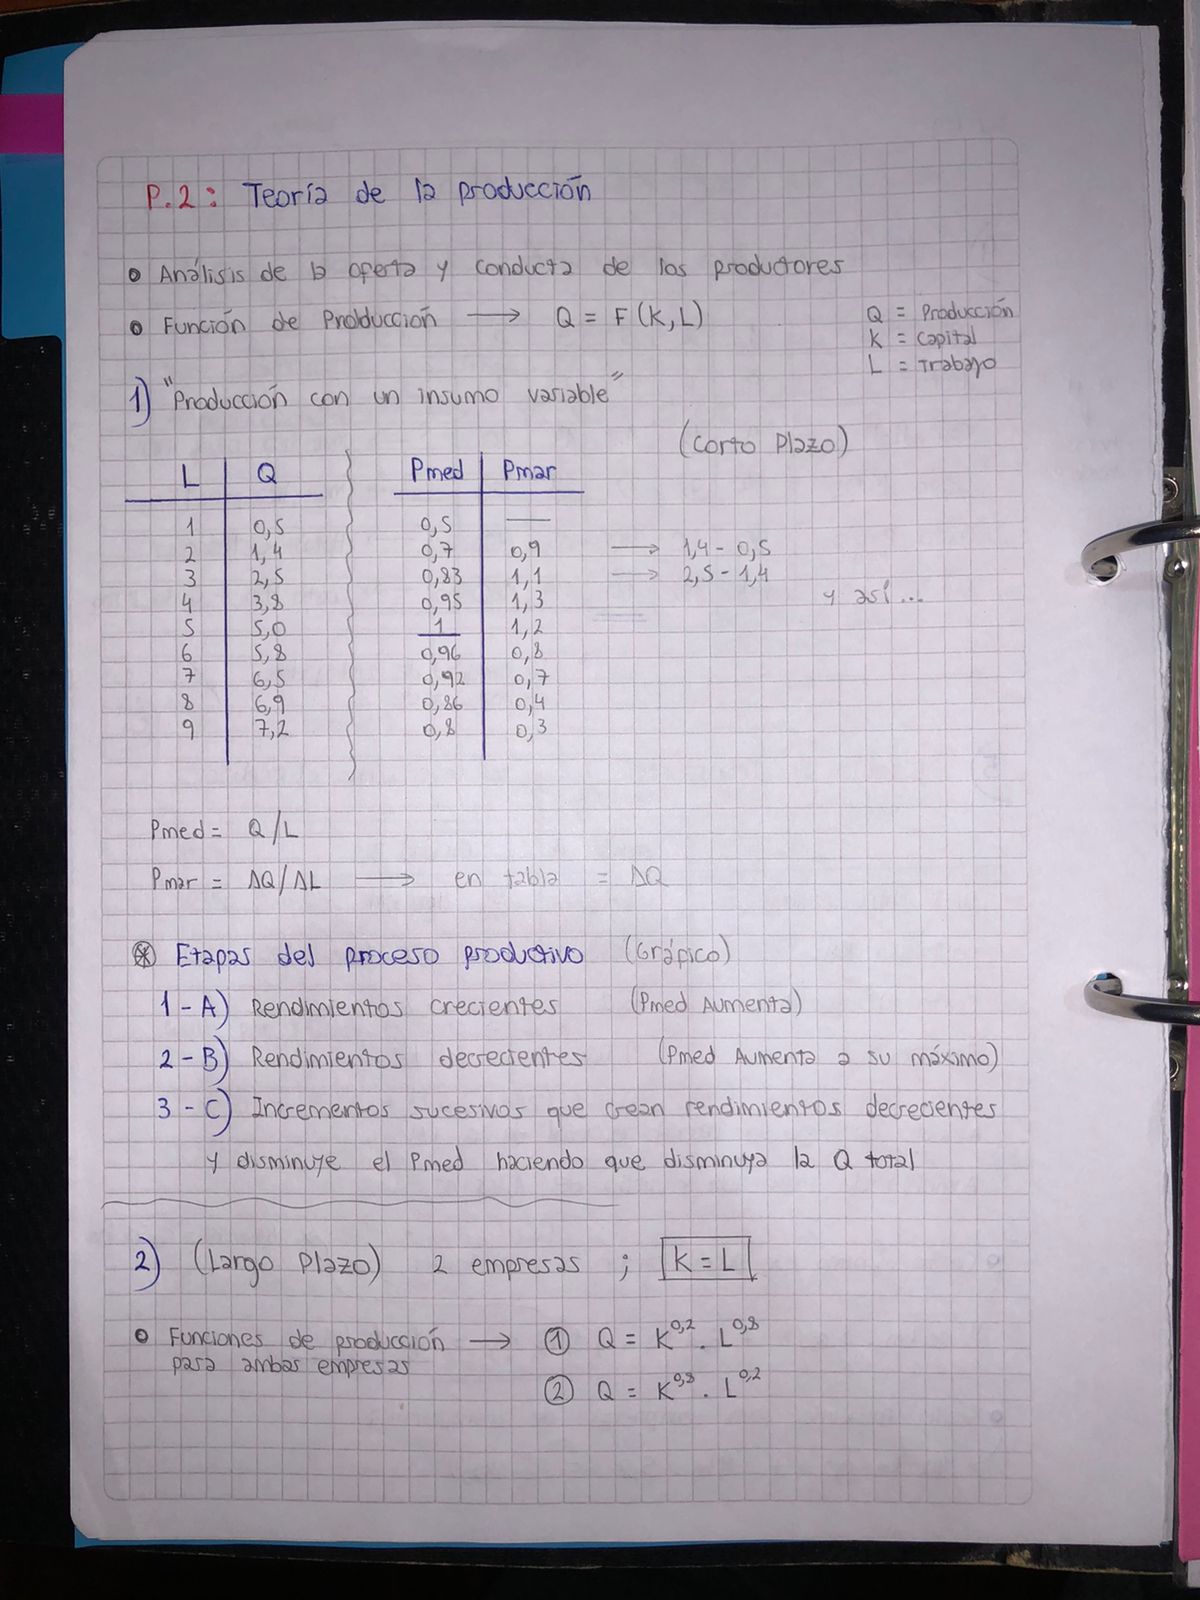 P.2: Teoría de la producción
• Análisis de la oferta y conducta de los productores
• Función de Producción → Q = F(K,L)
Q = Producción
K = Capital
L = Trabajo
1) "Producción con un insumo variable"
(Corto Plazo)
L | Q | Pmed | Pmar
1 | 0,5 | 0,5 | —
2 | 1,4 | 0,7 | 0,9 → 1,4 - 0,5
3 | 2,5 | 0,83 | 1,1 → 2,5 - 1,4
4 | 3,8 | 0,95 | 1,3 y así...
5 | 5,0 | 1 | 1,2
6 | 5,8 | 0,96 | 0,8
7 | 6,5 | 0,92 | 0,7
8 | 6,9 | 0,86 | 0,4
9 | 7,2 | 0,8 | 0,3
Pmed = Q/L
Pmar = ΔQ/ΔL → en tabla = ΔQ
⊛ Etapas del proceso productivo (Gráfico)
1-A) Rendimientos crecientes (Pmed Aumenta)
2-B) Rendimientos decrecientes (Pmed Aumenta a su máximo)
3-C) Incrementos sucesivos que crean rendimientos decrecientes
y disminuye el Pmed haciendo que disminuya la Q total
2) (Largo Plazo) 2 empresas ; K = L
• Funciones de producción → ① Q = K^0,2 . L^0,8
para ambas empresas
② Q = K^0,8 . L^0,2